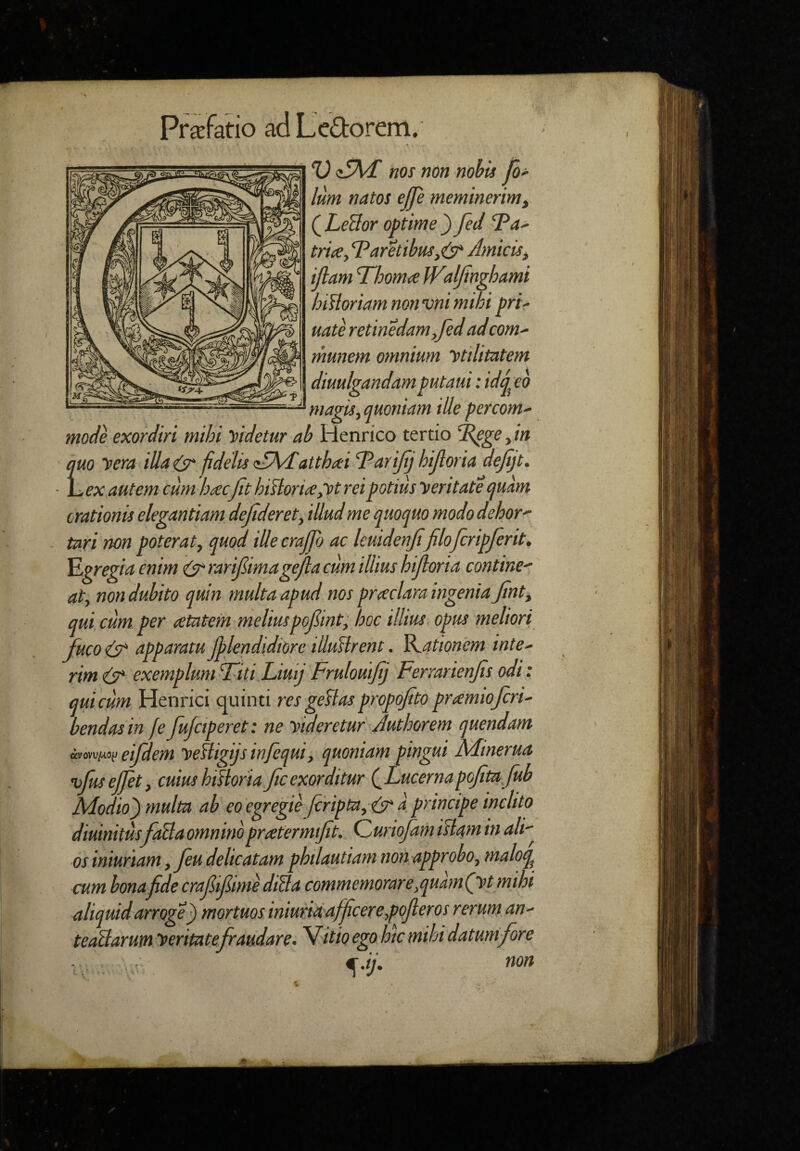 Præfatio ad Lectorem.
CVM nos non nobis ſo-
lùm natos eſſe meminerim,
(Lector optime) ſed Pa-
triæ, Parẽtibus, & Amicis,
iſtam Thomæ Walſinghami
hiſtoriam non vni mihi pri-
uatè retinẽdam, ſed ad com-
munem omnium vtilitatem
diuulgandam putaui: idq; eò
magis, quoniam ille percom-
modè exordiri mihi videtur ab Henrico tertio Rege, in
quo vera illa & fidelis Matthæi Pariſij hiſtoria deſijt.
Lex autem cùm hæc ſit hiſtoriæ, vt rei potiùs veritatẽ quàm
orationis elegantiam deſideret, illud me quoquo modo dehor-
tari non poterat, quod ille craſſo ac leuidenſi filo ſcripſerit.
Egregia enim & rariſsima geſta cùm illius hiſtoria contine-
at, non dubito quin multa apud nos præclara ingenia ſint,
qui cùm per ætatem meliùs poſsint, hoc illius opus meliori
fuco & apparatu ſplendidiore illuſtrent. Rationem inte-
rim & exemplum Titi Liuij Frulouiſij Ferrarienſis odi:
qui cùm Henrici quinti res geſtas propoſito præmio ſcri-
bendas in ſe ſuſciperet: ne videretur Authorem quendam
ἀνώνυμον eiſdem veſtigijs inſequi, quoniam pingui Minerua
vſus eſſet, cuius hiſtoria ſic exorditur (Lucerna poſita ſub
Modio) multa ab eo egregiè ſcripta, & à principe inclito
diuinitùs facta omninò prætermiſit. Curioſam iſtam in ali-
os iniuriam, ſeu delicatam philautiam non approbo, maloq;
cum bona fide craſsiſsimè dicta commemorare, quàm (vt mihi
aliquid arrogẽ) mortuos iniuria afficere, poſteros rerum an-
teactarum veritate fraudare. Vitio ego hîc mihi datum fore
¶.ij. non